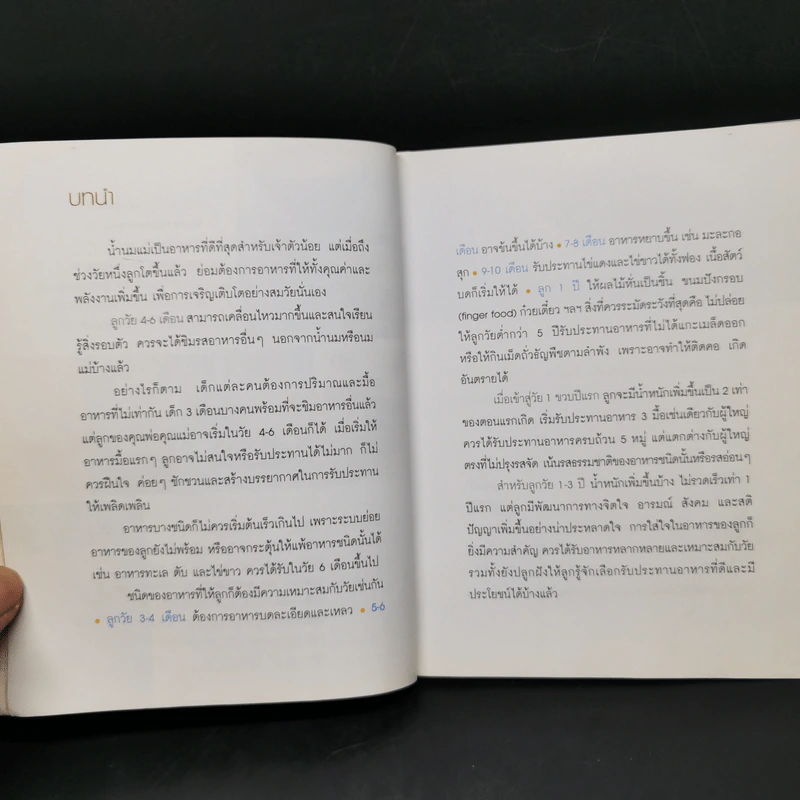 บทนำ
น้ำนมแม่เป็นอาหารที่ดีที่สุดสำหรับเจ้าตัวน้อย แต่เมื่อถึง
ช่วงวัยหนึ่งลูกโตขึ้นแล้ว ย่อมต้องการอาหารที่ให้ทั้งคุณค่าและ
พลังงานเพิ่มขึ้น เพื่อการเจริญเติบโตอย่างสมวัยนั่นเอง
ลูกวัย 4-6 เดือน สามารถเคลื่อนไหวมากขึ้นและสนใจเรียน
รู้สิ่งรอบตัว ควรจะได้ชิมรสอาหารอื่นๆ นอกจากน้ำนมหรือนม
แม่บ้างแล้ว
อย่างไรก็ตาม เด็กแต่ละคนต้องการปริมาณและมื้อ
อาหารที่ไม่เท่ากัน เด็ก 3 เดือนบางคนพร้อมที่จะชิมอาหารอื่นแล้ว
แต่ลูกของคุณพ่อคุณแม่อาจเริ่มในวัย 4-6 เดือนก็ได้ เมื่อเริ่มให้
อาหารมื้อแรกๆ ลูกอาจไม่สนใจหรือรับประทานได้ไม่มาก ก็ไม่
ควรฝืนใจ ค่อยๆ ชักชวนและสร้างบรรยากาศในการรับประทาน
ให้เพลิดเพลิน
อาหารบางชนิดก็ไม่ควรเริ่มต้นเร็วเกินไป เพราะระบบย่อย
อาหารของลูกยังไม่พร้อม หรืออาจกระตุ้นให้แพ้อาหารชนิดนั้นได้
เช่น อาหารทะเล ตับ และไข่ขาว ควรได้รับในวัย 6 เดือนขึ้นไป
ชนิดของอาหารที่ให้ลูกก็ต้องมีความเหมาะสมกับวัยเช่นกัน
• ลูกวัย 3-4 เดือน ต้องการอาหารบดละเอียดและเหลว • 5-6
เดือน อาจข้นขึ้นได้บ้าง • 7-8 เดือน อาหารหยาบขึ้น เช่น มะละกอ
สุก • 9-10 เดือน รับประทานไข่แดงและไข่ขาวได้ทั้งฟอง เนื้อสัตว์
บดก็เริ่มให้ได้ • ลูก 1 ปี ให้ผลไม้หั่นเป็นชิ้น ขนมปังกรอบ
(finger food) ก๋วยเตี๋ยว ฯลฯ สิ่งที่ควรระมัดระวังที่สุดคือ ไม่ปล่อย
ให้ลูกวัยต่ำกว่า 5 ปีรับประทานอาหารที่ไม่ได้แกะเมล็ดออก
หรือให้กินเม็ดถั่วธัญพืชตามลำพัง เพราะอาจทำให้ติดคอ เกิด
อันตรายได้
เมื่อเข้าสู่วัย 1 ขวบปีแรก ลูกจะมีน้ำหนักเพิ่มขึ้นเป็น 2 เท่า
ของตอนแรกเกิด เริ่มรับประทานอาหาร 3 มื้อเช่นเดียวกับผู้ใหญ่
ควรได้รับประทานอาหารครบถ้วน 5 หมู่ แต่แตกต่างกับผู้ใหญ่
ตรงที่ไม่ปรุงรสจัด เน้นรสธรรมชาติของอาหารชนิดนั้นหรือรสอ่อนๆ
สำหรับลูกวัย 1-3 ปี น้ำหนักเพิ่มขึ้นบ้าง ไม่รวดเร็วเท่า 1
ปีแรก แต่ลูกมีพัฒนาการทางจิตใจ อารมณ์ สังคม และสติ
ปัญญาเพิ่มขึ้นอย่างน่าประหลาดใจ การใส่ใจในอาหารของลูกก็
ยิ่งมีความสำคัญ ควรได้รับอาหารหลากหลายและเหมาะสมกับวัย
รวมทั้งยังปลูกฝังให้ลูกรู้จักเลือกรับประทานอาหารที่ดีและมี
ประโยชน์ได้บ้างแล้ว